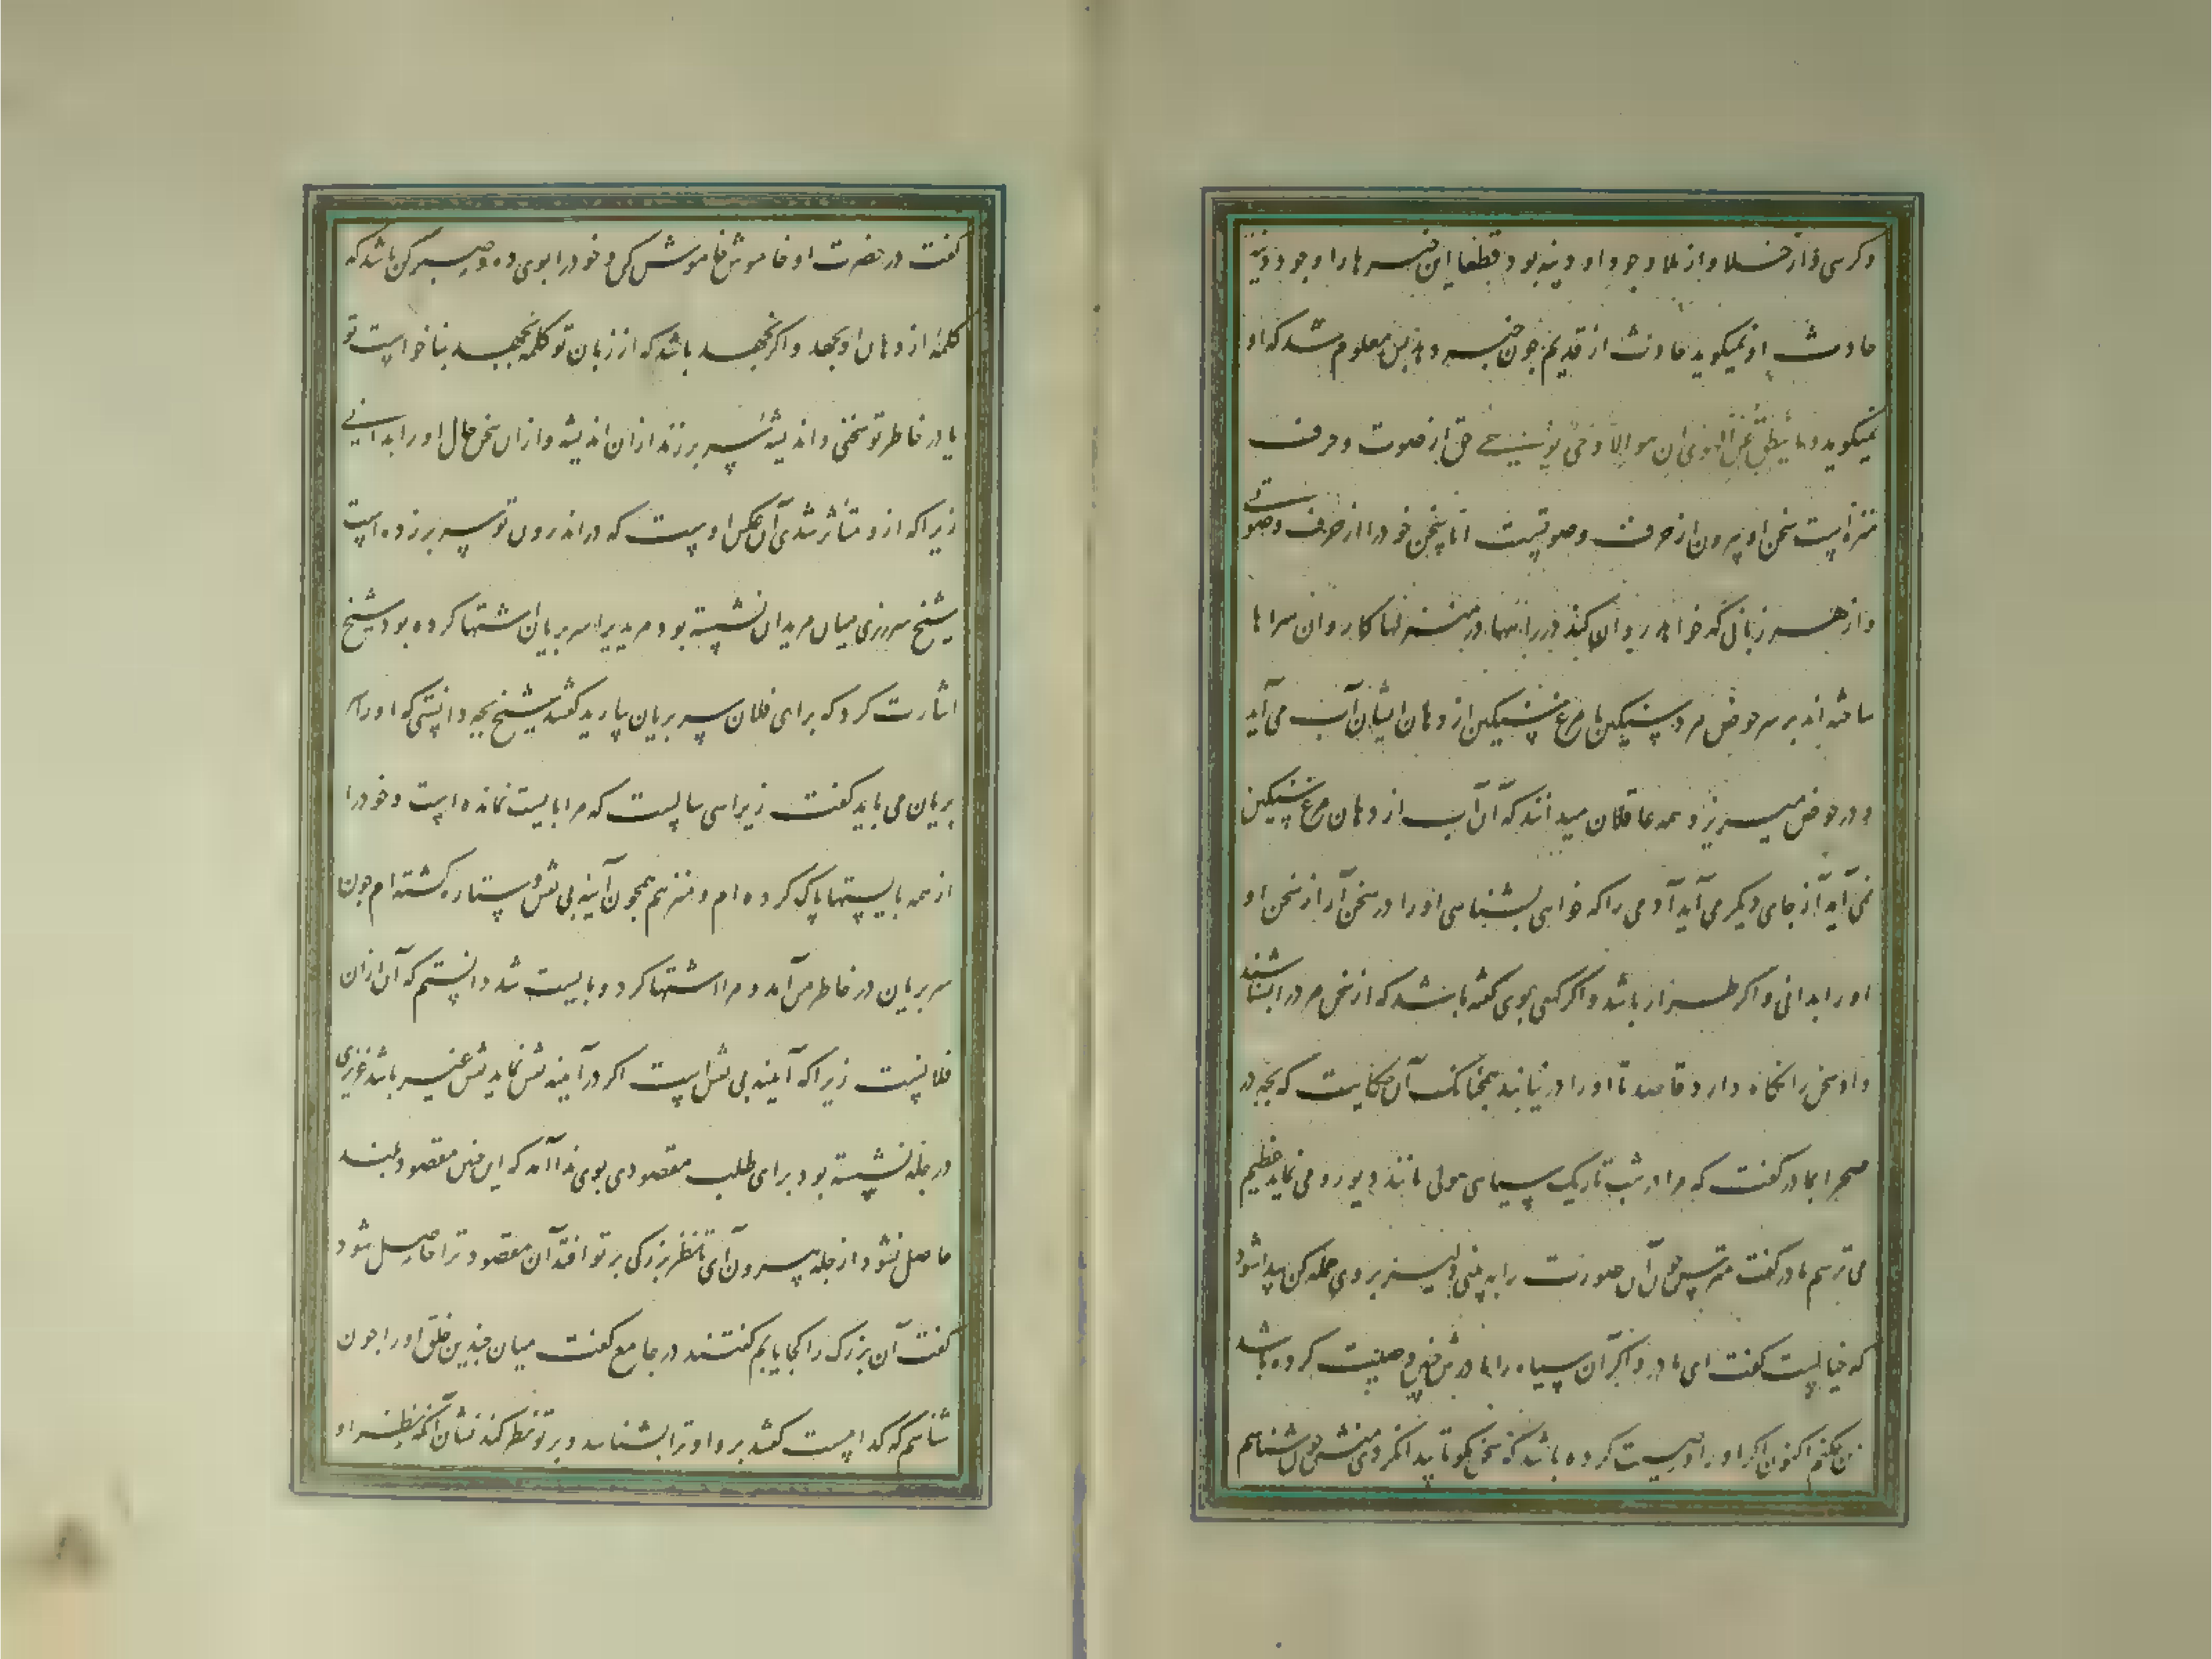 و کرسی و از خلا و از ملا و جود او دینه بود قطعا این خبرها را وجود دینه
حادث او نمیگوید حادث از قدیم چون خبر دهد پس معلوم شد که او
نمیگوید و ما ینطق عن الهوی ان هو الا وحی یوحی حق از صوت و حرف
منزه است سخن او بیرون از حرف و صوتست اما سخن خود را از حرف و صوتی
و از هر زبان که خواهد روان کند در راهها در منزلها کاروان سراها
ساخته اند بر سر حوض مرد سنگین یا مرغ سنگین از دهان ایشان آب می آید
و در حوض میریزد همه عاقلان میدانند که آن آب از دهان مرغ سنگین
نمی آید آن از جای دیگر می آید آدمی را که خواهی بشناسی او را در سخن آر از سخن او
او را بدانی و اگر طرار باشد و اگر کسی بوی گفته باشد که از سخن مرد را بشناسند
و او سخن را نگاه دارد قاصد تا او را در نیابند همچنانک آن حکایت که بچه در
صحرا بمادر گفت که مرا در شب تاریک سیاهی هولی مانند دیو رو می نماید عظیم
می ترسم مادر گفت مترس چون آن صورت را به بینی دلیر بر وی حمله کن پیدا شود
که خیالیست گفت ای مادر و اگر آن سیاه را مادرش چنین وصیت کرده باشد
من چکنم اکنون اگر او را وصیت کرده باشد که سخن مگو تا پیدا نگردی منش چون شناسم
گفت در حضرت او خاموش خاموش کن و خود را بوی ده و صبر کن باشد که
کلمه از دهان او بجهد و اگر نجهد باشد که از زبان تو کلمه بجهد بناخواست تو
یا در خاطر تو سخنی و اندیشه سر برزند از آن اندیشه و از آن سخن حال او را بدانی
زیرا که ازو متاثر شدی آن عکس اوست که در اندرون تو سر برزده است
شیخ سررزی میان مریدان نشسته بود مریدی را سر بریان اشتها کرده بود شیخ
اشارت کرد که برای فلان سر بریان بیارید گفتند شیخ بچه دانستی که او را سر
بریان می باید گفت زیرا سی سالست که مرا بایست نمانده است و خود را
از همه بایستها پاک کرده ام و منزهم همچون آینه بی نقش و ستاره گشته ام چون
سر بریان در خاطر من آمد و مرا اشتها کرد و بایست شد دانستم که آن از آن
فلانست زیرا که آینه بی نقش است اگر در آینه نقش نماید نقش غیر باشد عزیزی
در چله نشسته بود برای طلب مقصودی بوی ندا آمد که این چنین مقصود بلند
حاصل نشود از چله بیرون آی تا نظر بزرگی بر تو افتد آن مقصود ترا حاصل شود
گفت آن بزرگ را کجا یابم گفتند در جامع گفت میان چندین خلق او را چون
شناسم که کدامست گفتند برو او ترا بشناسد و بر تو نظر کند نشان آنکه نظر او